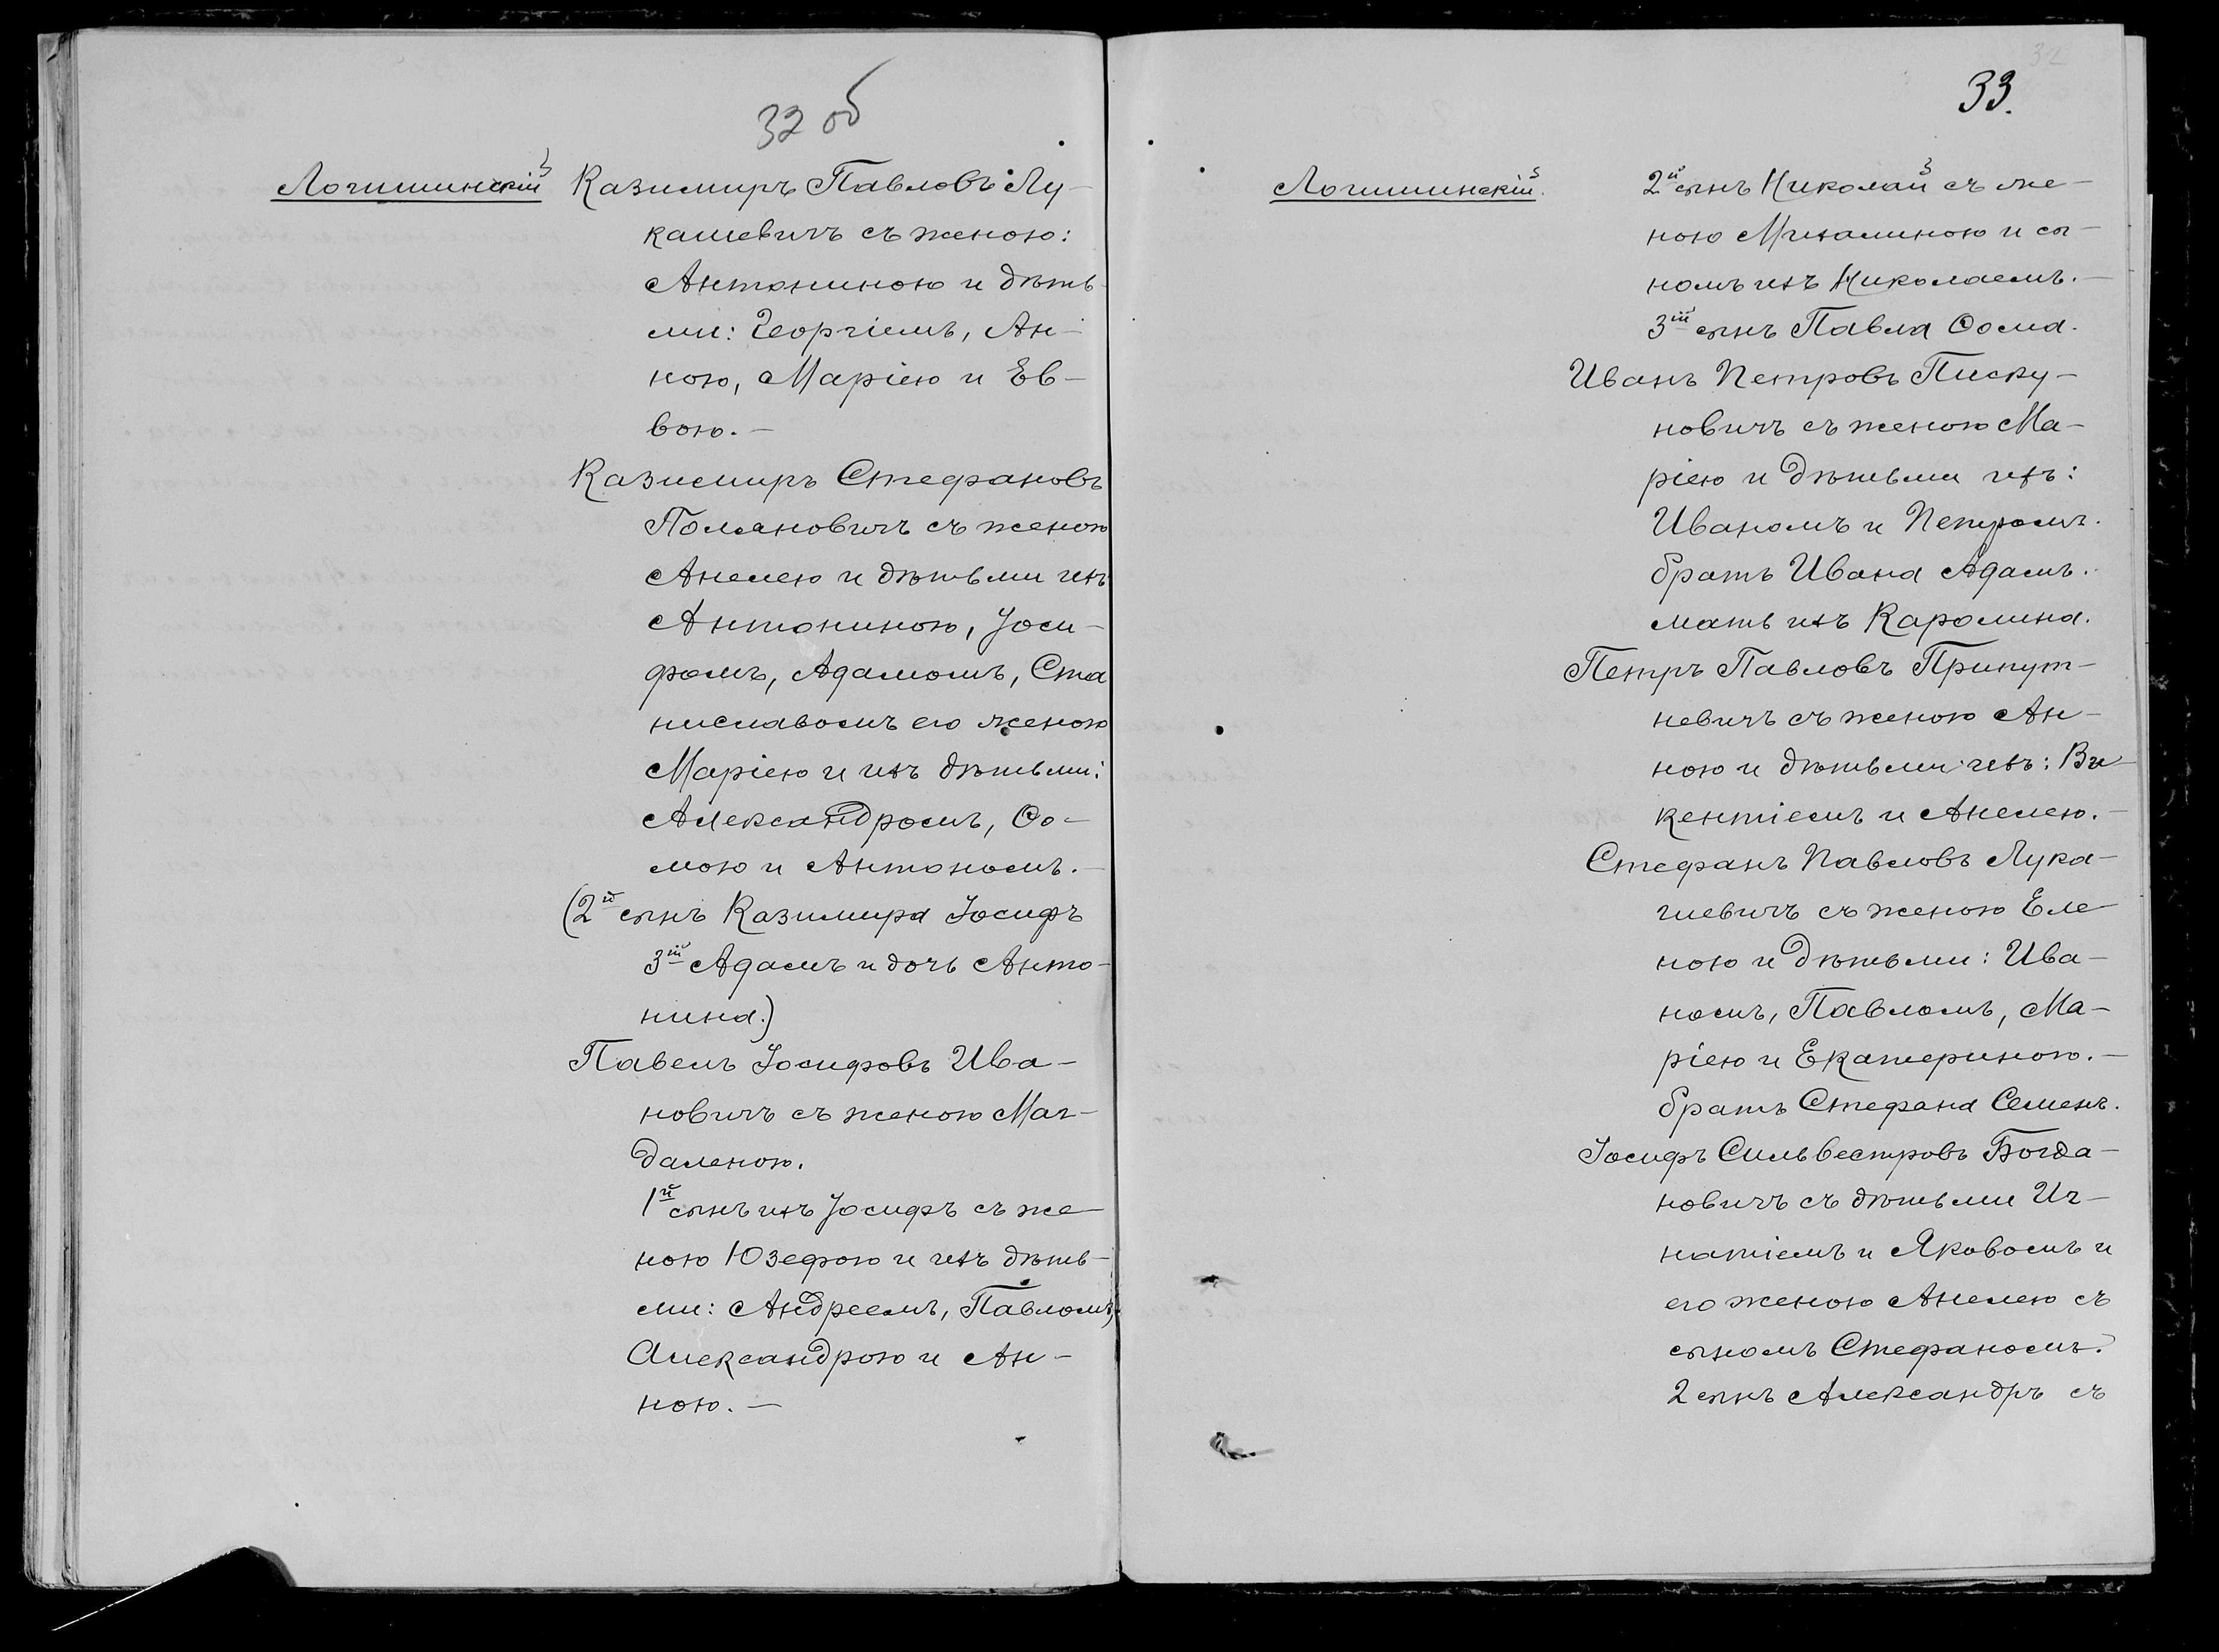 32 об
Логишинскій Казимиръ Павловъ Лу-
кашевичъ съ женою:
Антониною и дѣть-
ми: Георгіемъ, Ан-
ною, Маріею и Ев-
вою.-
Казимиръ Стефановъ
Полхановичъ съ женою
Анелею и дѣтьми ихъ
Антониною, Іоси-
фомъ, Адамомъ, Ста
ниславомъ его женою
Маріею и ихъ дѣтьми:
Александромъ, Ѳо-
мою и Антономъ.-
(2й сынъ Казимира Іосифъ
3ій Адамъ и дочь Анто-
нина.)
Павелъ Іосифовъ Ива-
новичъ съ женою Маг-
даленою.
1й сынъ ихъ Іосифъ съ же
ною Юзефою и ихъ дѣть-
ми: Андреемъ, Павломъ,
Александрою и Ан-
ною.-
32
33.
Логишинскій. 2й сынъ Николай съ же-
ною Михалиною и сы-
номъ ихъ Николаемъ.-
3ій сынъ Павла Ѳома.
Иванъ Петровъ Писку-
новичъ съ женою Ма-
ріею и дѣтьми ихъ:
Иваномъ и Петромъ.
братъ Ивана Адамъ.
мать ихъ Каролина.
Петръ Павловъ Припут-
невичъ съ женою Ан-
ною и дѣтьми ихъ: Ви
кентіемъ и Анелею.-
Стефанъ Павловъ Лука-
шевичъ съ женою Еле
ною и дѣтьми: Ива-
номъ, Павломъ, Ма-
ріею и Екатериною.-
братъ Стефана Семенъ.
Іосифъ Сильвестровъ Богда-
новичъ съ дѣтьми Иг-
натіемъ и Яковомъ и
его женою Анелею съ
сыномъ Стефаномъ.
2 сынъ Александръ съ